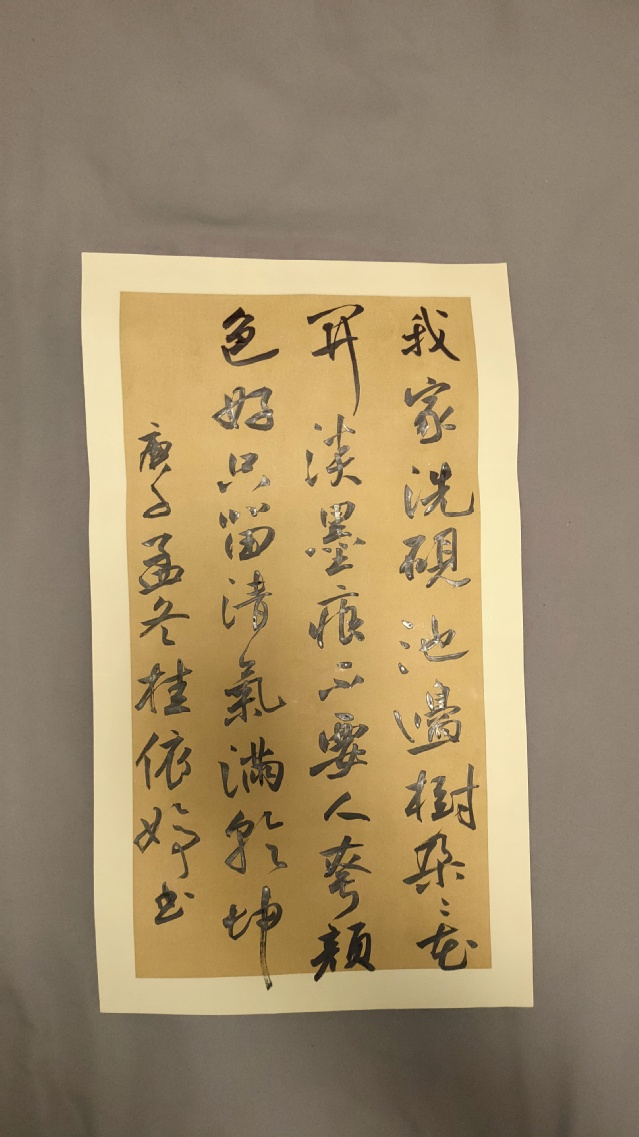 我家洗硯池邊樹朵〻花
开淡墨痕不要人夸顏
色好只留清氣滿乾坤
庚子孟冬桂依婷书